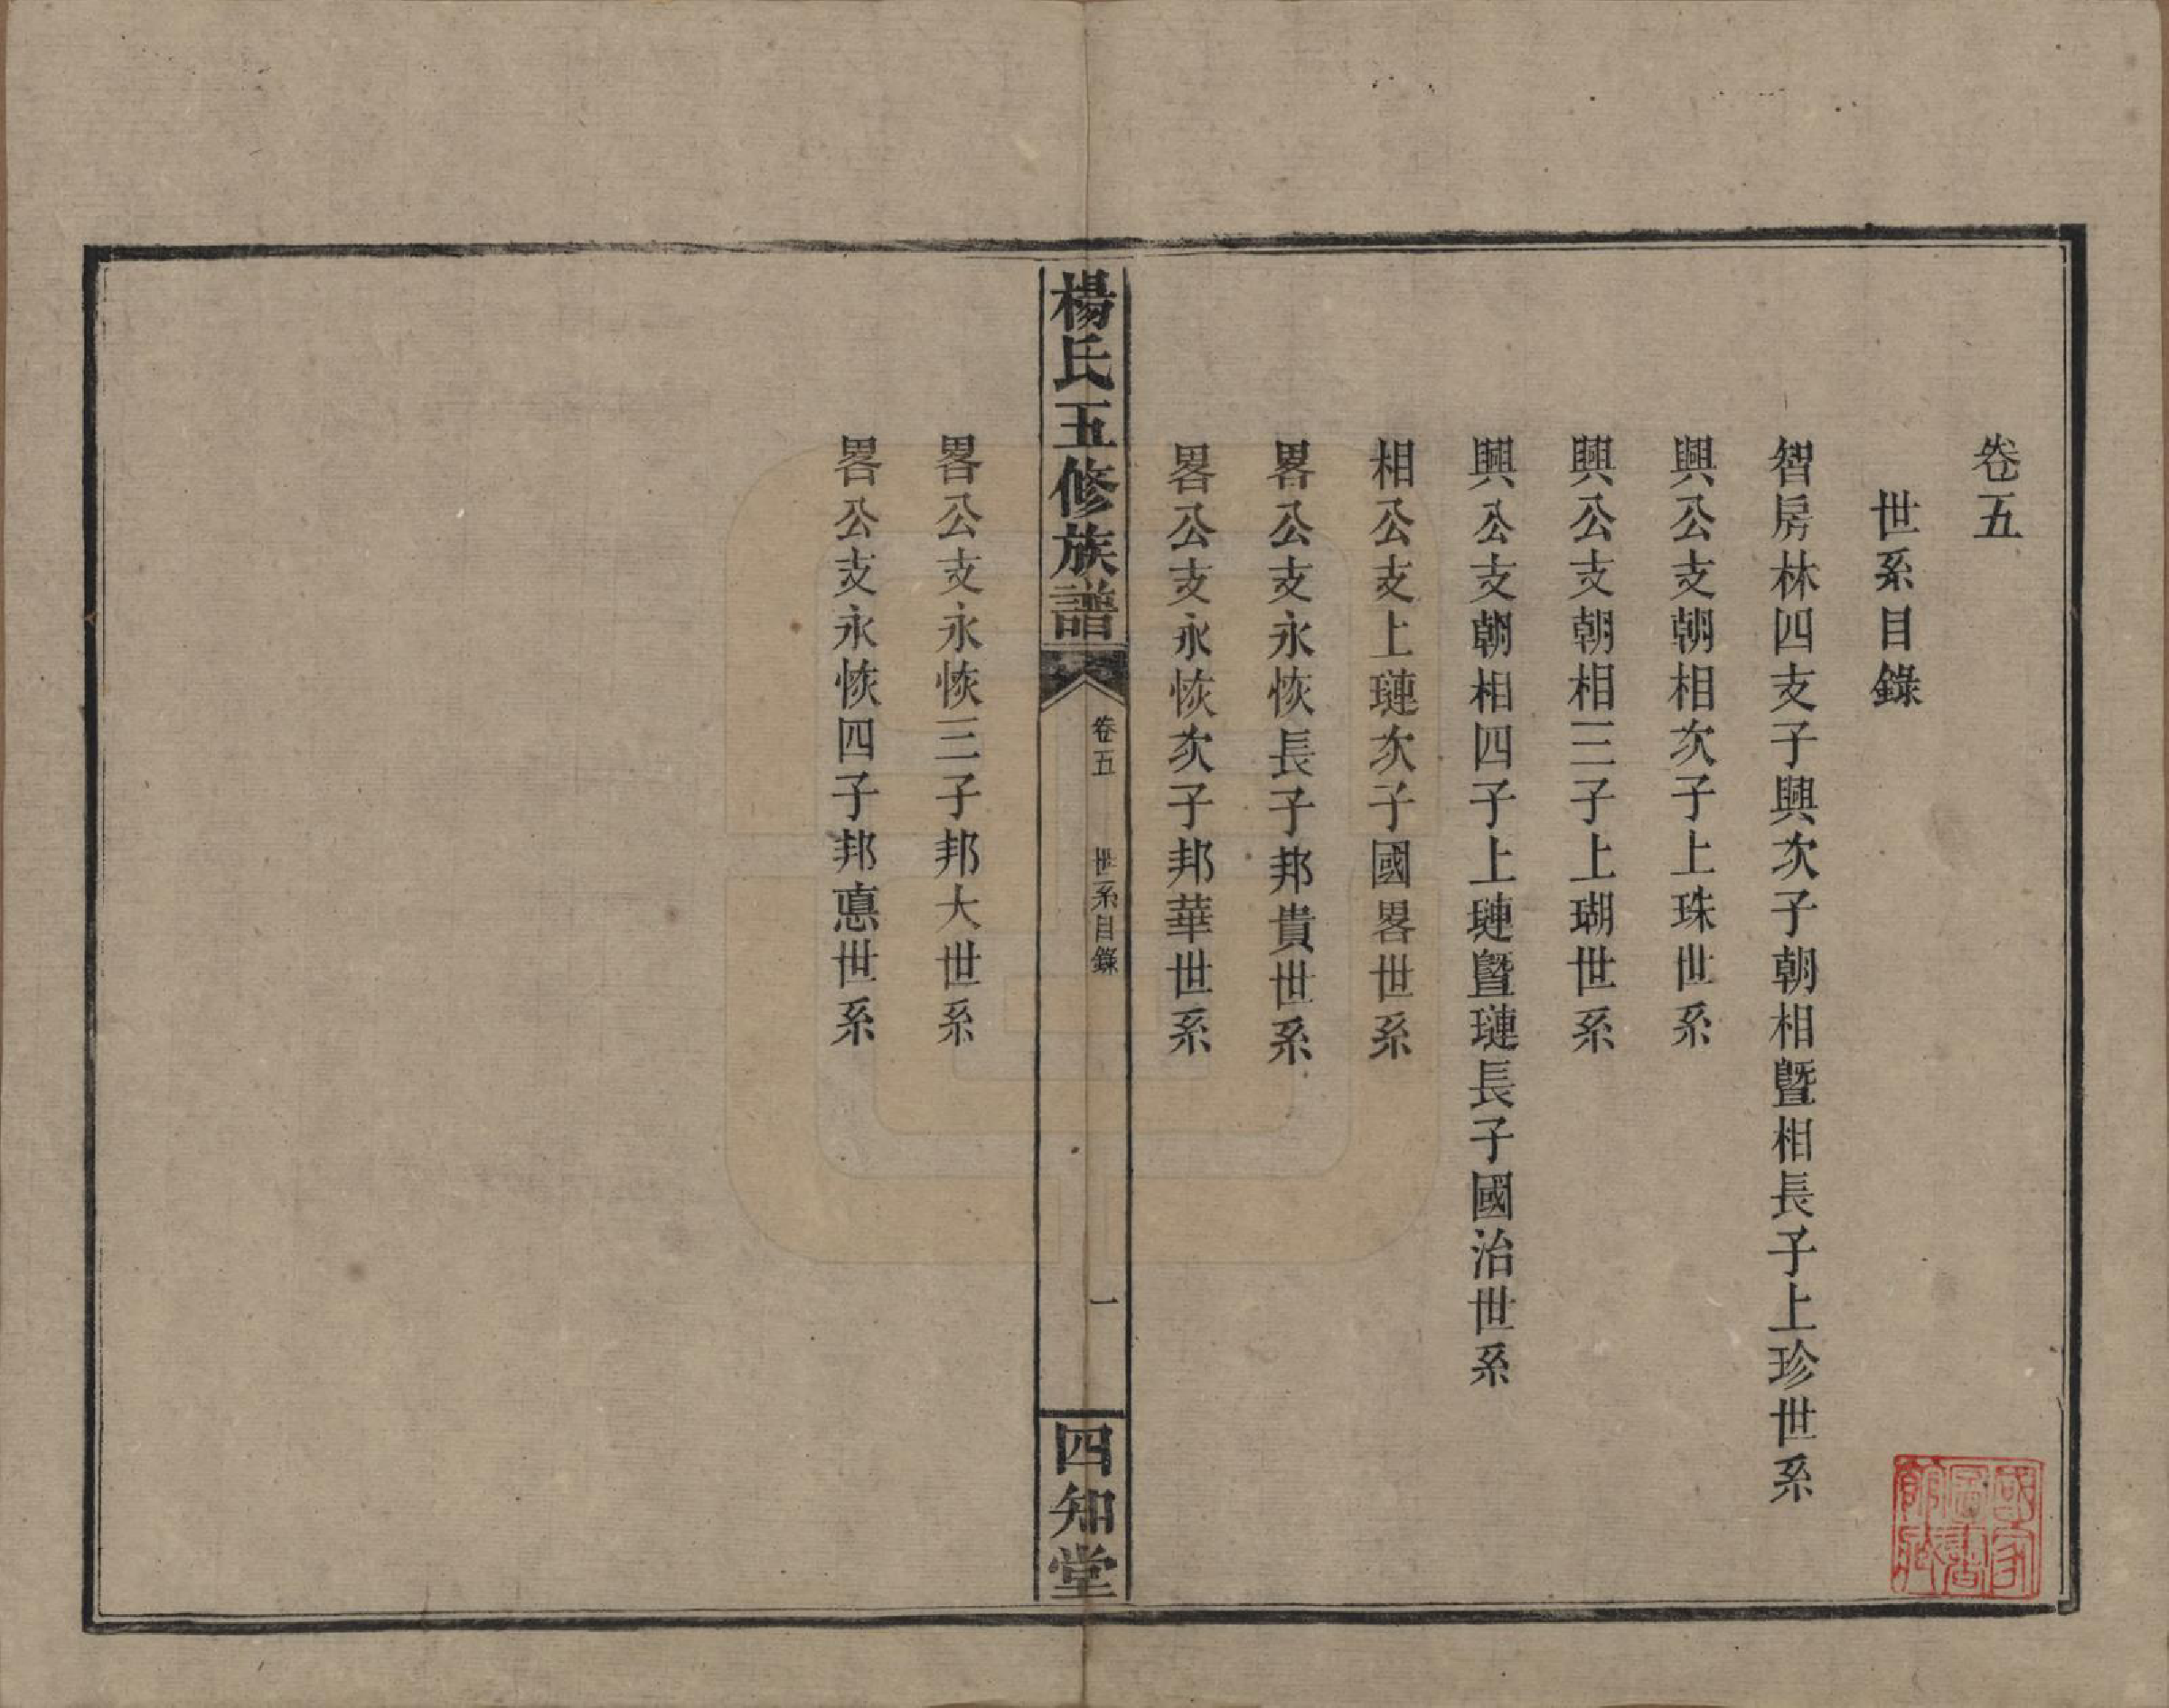 卷五
世系目錄
智房林四支子興次子朝相暨相長子上珍世系
興公支朝相次子上珠世系
興公支朝相三子上瑚世系
興公支朝相四子上璉暨璉長子國治世系
相公支上璉次子國畧世系
畧公支永恢長子邦貴世系
畧公支永恢次子邦華世系
楊氏五修族譜
卷五
世系目錄
一
四知堂
畧公支永恢三子邦大世系
畧公支永恢四子邦悳世系
國家圖書館藏